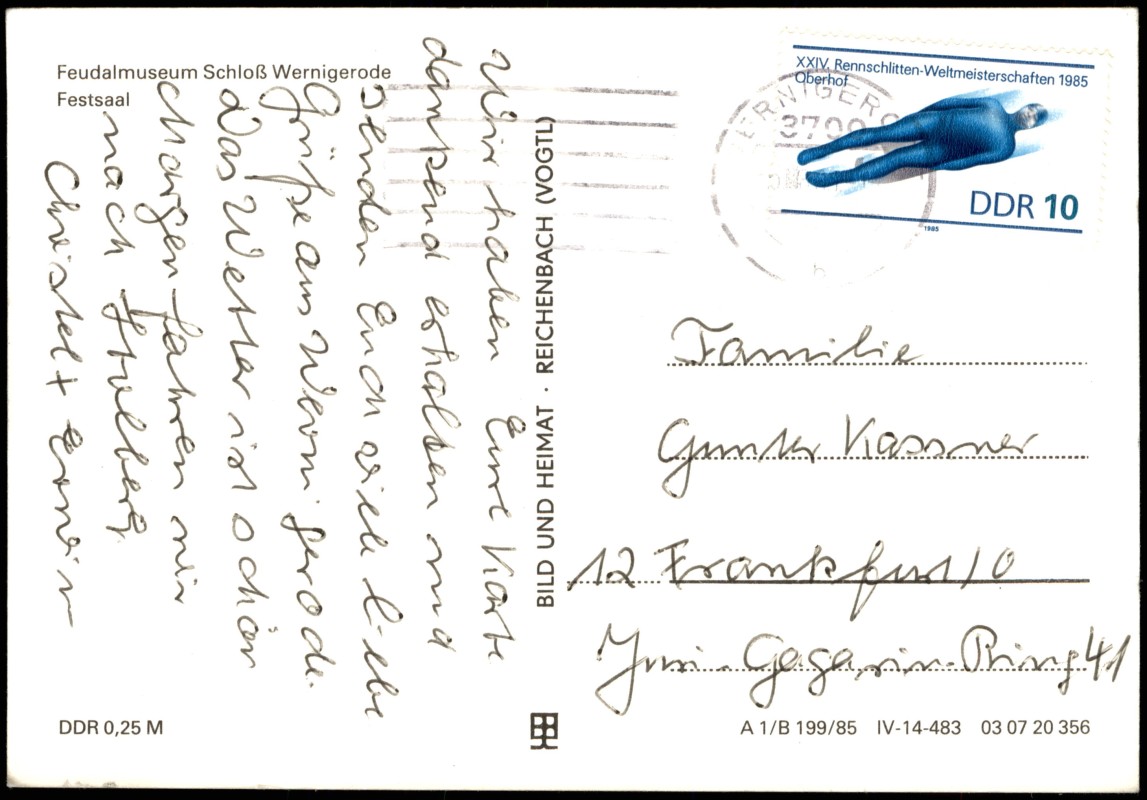 Feudalmuseum Schloß Wernigerode
Festsaal
Wir haben Eure Karte
dankend erhalten und
senden Euch viele liebe
Grüße aus Wernigerode.
Das Wetter ist schön
Morgen fahren wir
nach Stolberg.
Christel + Erwin
BILD UND HEIMAT · REICHENBACH (VOGTL)
XXIV. Rennschlitten-Weltmeisterschaften 1985
Oberhof
DDR 10
1985
ERNIGER
3700
h
Familie
Gunter Kassner
12 Frankfurt/O
Juri-Gagarin-Ring 41
DDR 0,25 M
A 1/B 199/85 IV-14-483 03 07 20 356